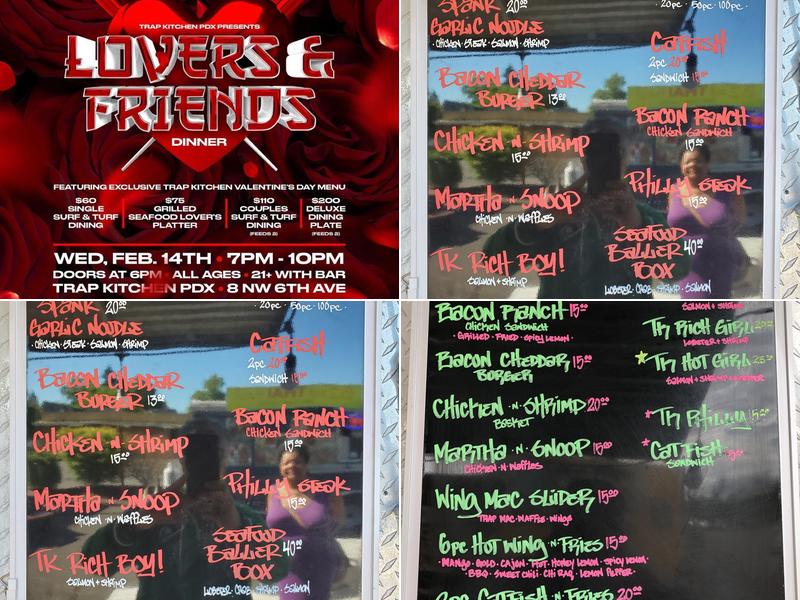 TRAP KITCHEN PDX PRESENTS
LOVERS &
FRIENDS
DINNER
FEATURING EXCLUSIVE TRAP KITCHEN VALENTINE'S DAY MENU
$60
SINGLE
SURF & TURF
DINING
$75
GRILLED
SEAFOOD LOVER'S
PLATTER
$110
COUPLES
SURF & TURF
DINING
(FEEDS 2)
$200
DELUXE
DINING
PLATE
(FEEDS 2)
WED, FEB. 14TH • 7PM - 10PM
DOORS AT 6PM • ALL AGES • 21+ WITH BAR
TRAP KITCHEN PDX • 8 NW 6TH AVE
SPANK 20.00
GARLIC NOODLE
• CHICKEN • STEAK • SALMON • SHRIMP
BACON CHEDDAR
BURGER 13.00
CHICKEN N SHRIMP
15.00
MARTHA N SNOOP
CHICKEN N WAFFLES
TK RICH BOY!
SALMON + SHRIMP
• 20pc • 50pc • 100pc •
CATFISH
2pc 20.00
SANDWICH 15.00
BACON RANCH
CHICKEN SANDWICH
15.00
PHILLY STEAK
15.00
SEAFOOD
BALLER 40.00
BOX
LOBSTER • CRAB • SHRIMP • SALMON
SPANK 20.00
GARLIC NOODLE
• CHICKEN • STEAK • SALMON • SHRIMP
BACON CHEDDAR
BURGER 13.00
CHICKEN N SHRIMP
15.00
MARTHA N SNOOP
CHICKEN N WAFFLES
TK RICH BOY!
SALMON + SHRIMP
• 20pc • 50pc • 100pc •
CATFISH
2pc 20.00
SANDWICH 15.00
BACON RANCH
CHICKEN SANDWICH
15.00
PHILLY STEAK
15.00
SEAFOOD
BALLER 40.00
BOX
LOBSTER • CRAB • SHRIMP • SALMON
BACON RANCH 15.00
CHICKEN SANDWICH
• GRILLED • FRIED • SPICY LEMON •
BACON CHEDDAR 15.00
BURGER
CHICKEN N SHRIMP 20.00
BASKET
MARTHA N SNOOP 15.00
CHICKEN N WAFFLES
WING MAC SLIDER 15.00
TRAP MAC • WAFFLE • WINGS
6pc HOT WING N FRIES 15.00
• MANGO • GOLD • CAJUN • FIRE HOT • HONEY LEMON • SPICY LEMON •
• BBQ • SWEET CHILI • CHI RAQ • LEMON PEPPER •
CATFISH N FRIES 20.00
SALMON + SHRIMP
TK RICH GIRL
LOBSTER + SHRIMP
TK HOT GIRL
TK PHILLY
CATFISH
SANDWICH